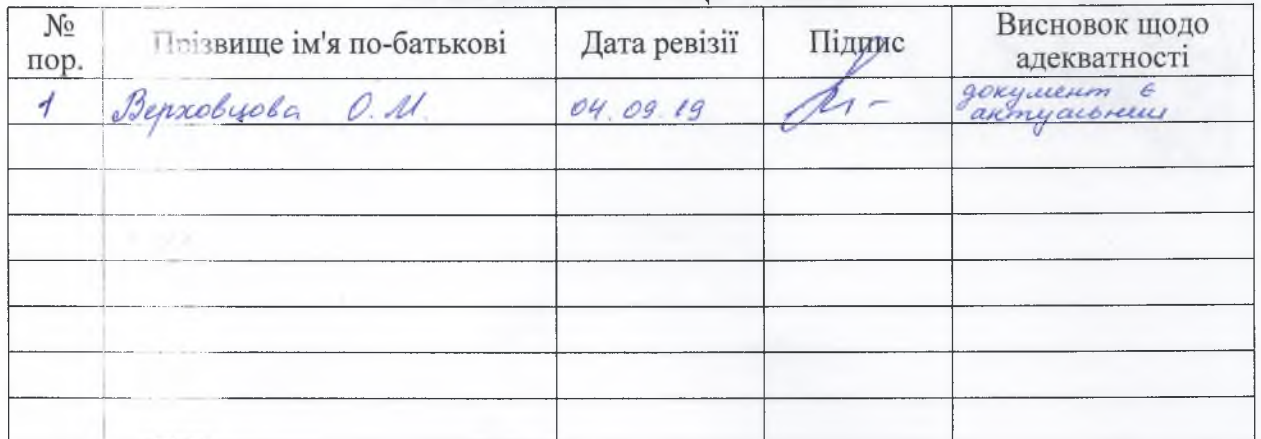 № пор. Прізвище ім'я по-батькові Дата ревізії Підпис Висновок щодо адекватності
1 Верховцова О.М. 04.09.19 документ є актуальним